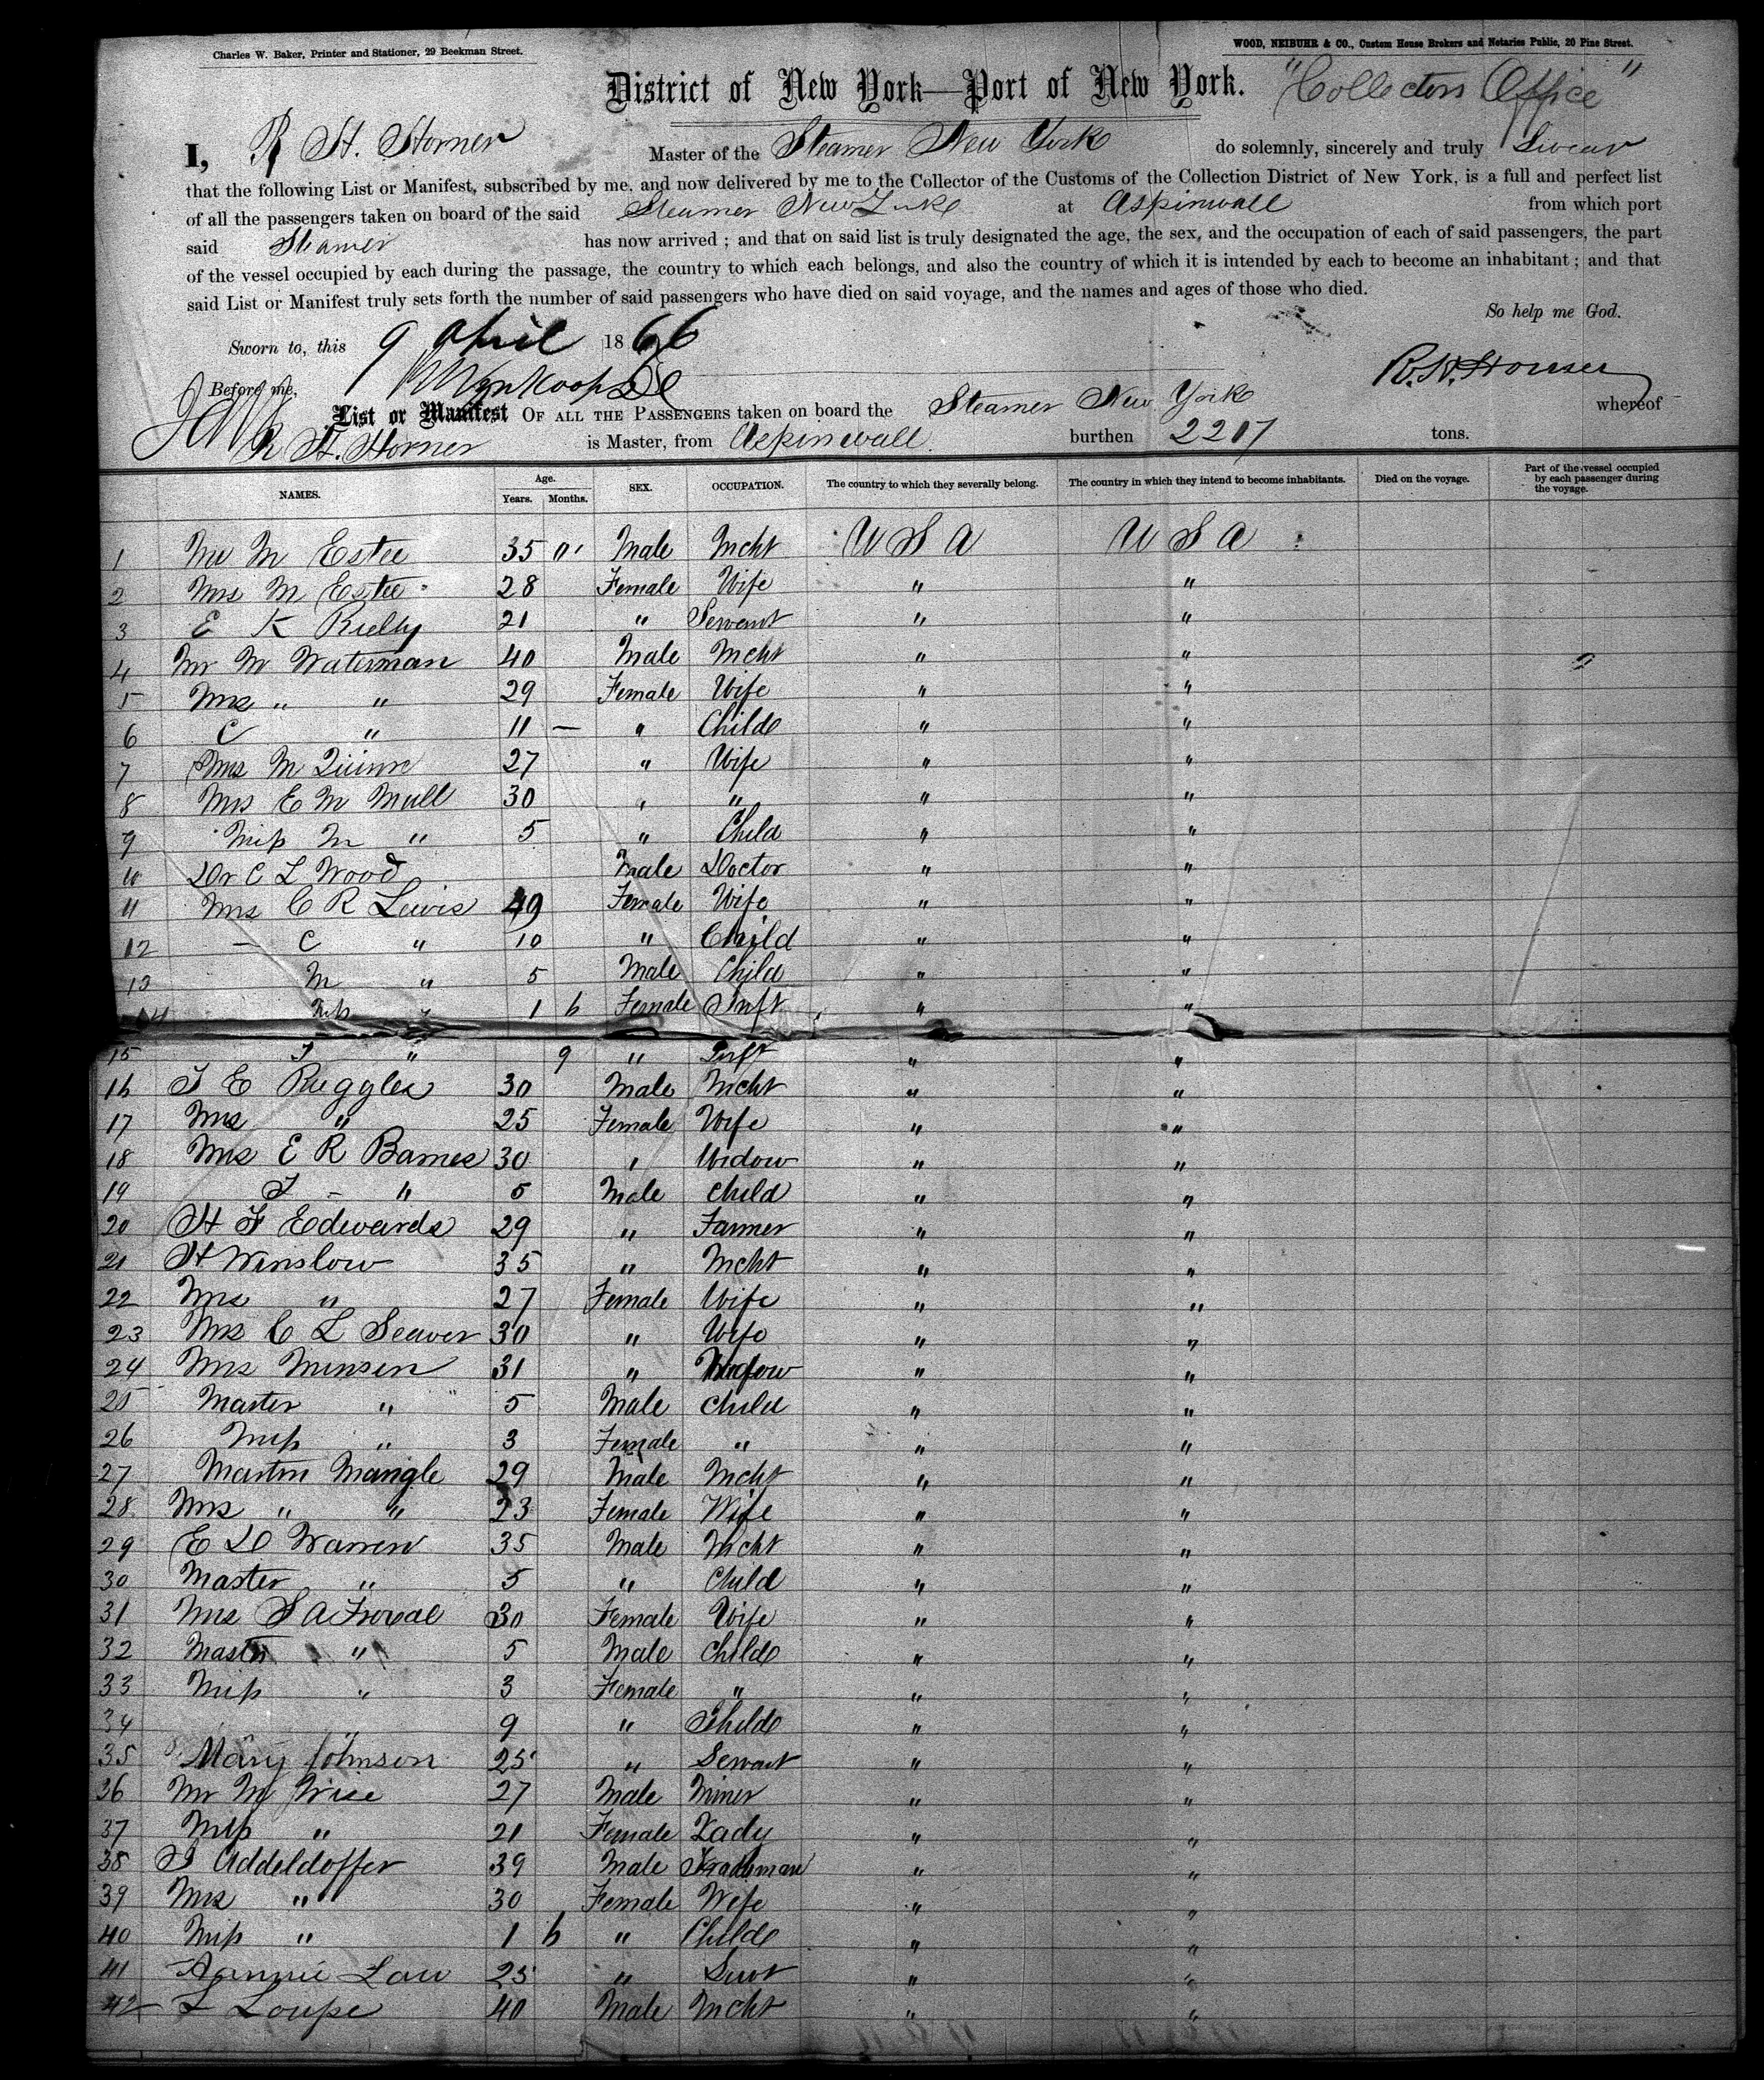 Charles W. Baker, Printer and Stationer, 29 Beekman Street.
WOOD, NEIBUHR & CO., Custom House Brokers and Notaries Public, 20 Pine Street.
District of New York—Port of New York. "Collectors Office"
I, R H. Horner Master of the Steamer New York do solemnly, sincerely and truly Swear
that the following List or Manifest, subscribed by me, and now delivered by me to the Collector of the Customs of the Collection District of New York, is a full and perfect list
of all the passengers taken on board of the said Steamer New York at Aspinwall from which port
said Steamer has now arrived ; and that on said list is truly designated the age, the sex, and the occupation of each of said passengers, the part
of the vessel occupied by each during the passage, the country to which each belongs, and also the country of which it is intended by each to become an inhabitant ; and that
said List or Manifest truly sets forth the number of said passengers who have died on said voyage, and the names and ages of those who died.
So help me God.
Sworn to, this 9 April 1866
R. H. Horner
Before me,
List or Manifest OF ALL THE PASSENGERS taken on board the Steamer New York whereof
R H. Horner is Master, from Aspinwall burthen 2217 tons.
NAMES. Age. Years. Months. SEX. OCCUPATION. The country to which they severally belong. The country in which they intend to become inhabitants. Died on the voyage. Part of the vessel occupied by each passenger during the voyage.
1 Mr M Estee 35 0 Male Mcht U S A U S A
2 Mrs M Estee 28 Female Wife " "
3 E K Rielly 21 " Servant " "
4 Mr M Waterman 40 Male Mcht " "
5 Mrs " " 29 Female Wife " "
6 C " 11 — " Child " "
7 Mrs M Quinn 27 " Wife " "
8 Mrs E M Mull 30 " " " "
9 Miss M " 5 " Child " "
10 Dr C L Wood Male Doctor " "
11 Mrs C R Lewis 49 Female Wife " "
12 — C " 10 " Child " "
13 M " 5 Male Child " "
14 Miss " 1 6 Female Inft " "
15 " 9 " Inft " "
16 J E Ruggles 30 Male Mcht " "
17 Mrs " 25 Female Wife " "
18 Mrs E R Barnes 30 " Widow " "
19 J - " 5 Male Child " "
20 H F Edwards 29 " Farmer " "
21 H Winslow 35 " Mcht " "
22 Mrs " 27 Female Wife " "
23 Mrs C L Seaver 30 " Wife " "
24 Mrs Munsen 31 " Widow " "
25 Master " 5 Male Child " "
26 Miss " 3 Female " " "
27 Martin Mangle 29 Male Mcht " "
28 Mrs " " 23 Female Wife " "
29 E D Warren 35 Male Mcht " "
30 Master " 5 " Child " "
31 Mrs S A 30 Female Wife " "
32 Master " 5 Male Child " "
33 Miss " 3 Female " " "
34 9 " Child " "
35 Mary Johnson 25 " Servant " "
36 Mr M Wise 27 Male Miner " "
37 Miss " 21 Female Lady " "
38 J Addeldoffer 39 Male Tradsman " "
39 Mrs " 30 Female Wife " "
40 Miss " 1 6 " Child " "
41 Fannie Law 25 " Servt " "
42 L Loupe 40 Male Mcht " "